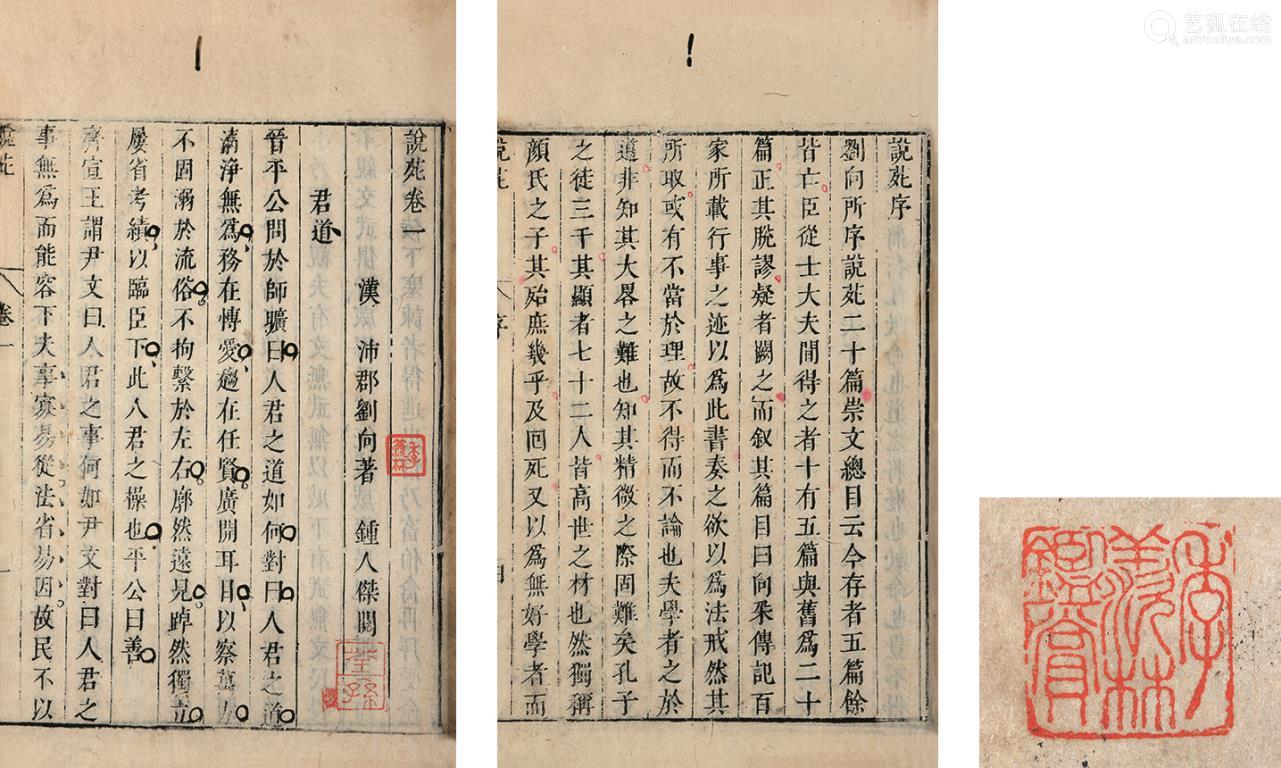 說苑卷一
漢 沛郡劉向著 鍾人傑閱
君道
晉平公問於師曠曰人君之道如何對曰人君之道
清淨無爲務在愽愛趨在任賢廣開耳目以察萬方
不固溺於流俗不拘繫於左右廓然遠見踔然獨立
屢省考績以臨臣下此人君之操也平公曰善
齊宣王謂尹文曰人君之事何如尹文對曰人君之
事無爲而能容下夫事寡易從法省易因故民不以
說苑
卷一
說苑序
劉向所序說苑二十篇崇文總目云今存者五篇餘
皆亡臣從士大夫間得之者十有五篇與舊爲二十
篇正其脫謬疑者闕之而叙其篇目曰向采傳記百
家所載行事之迹以爲此書奏之欲以爲法戒然其
所取或有不當於理故不得而不論也夫學者之於
道非知其大畧之難也知其精微之際固難矣孔子
之徒三千其顯者七十二人皆高世之材也然獨稱
顏氏之子其殆庶幾乎及回死又以爲無好學者而
說苑
序
艺狐在线
artfoxlive.com